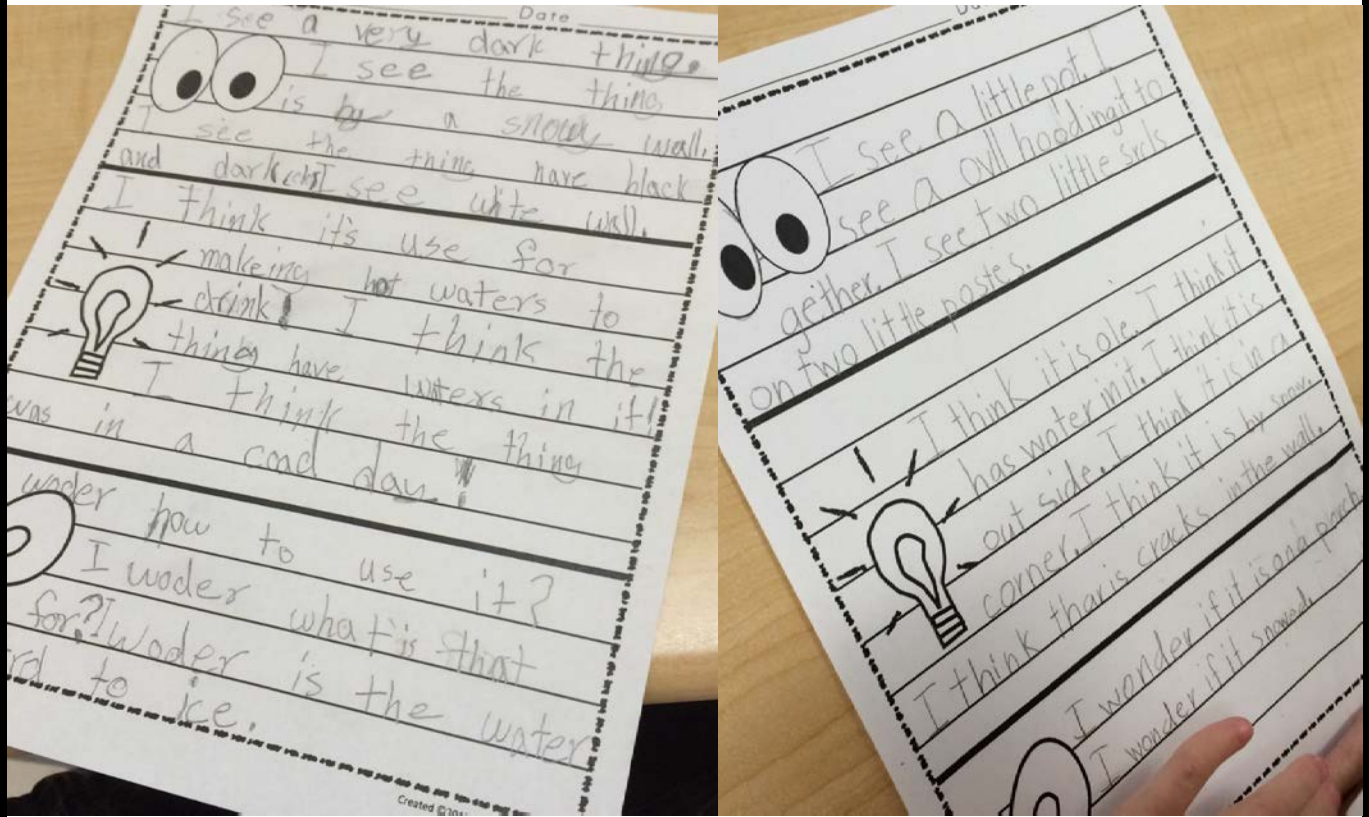 Date
I see a very dark thing.
I see the thing
is by a snowy wall.
I see the thing have black
and dark I see wite wall.
I think it's use for
makeing hot waters to
drink! I think the
thing have waters in it!
I think the thing
was in a coad day.
woder how to use it?
I woder what is that
for? I woder is the water
to ice.
Created ©201
I see a little pot. I
see a ovll hoodingit to
gether. I see two little srcls
on two little postes.
I think it is ole. I think it
has water in it. I think it is
out side. I think it is in a
corner. I think it is by snow.
I think thar is cracks in the wall.
I wonder if it is ona porch
I wonder if it snowed.